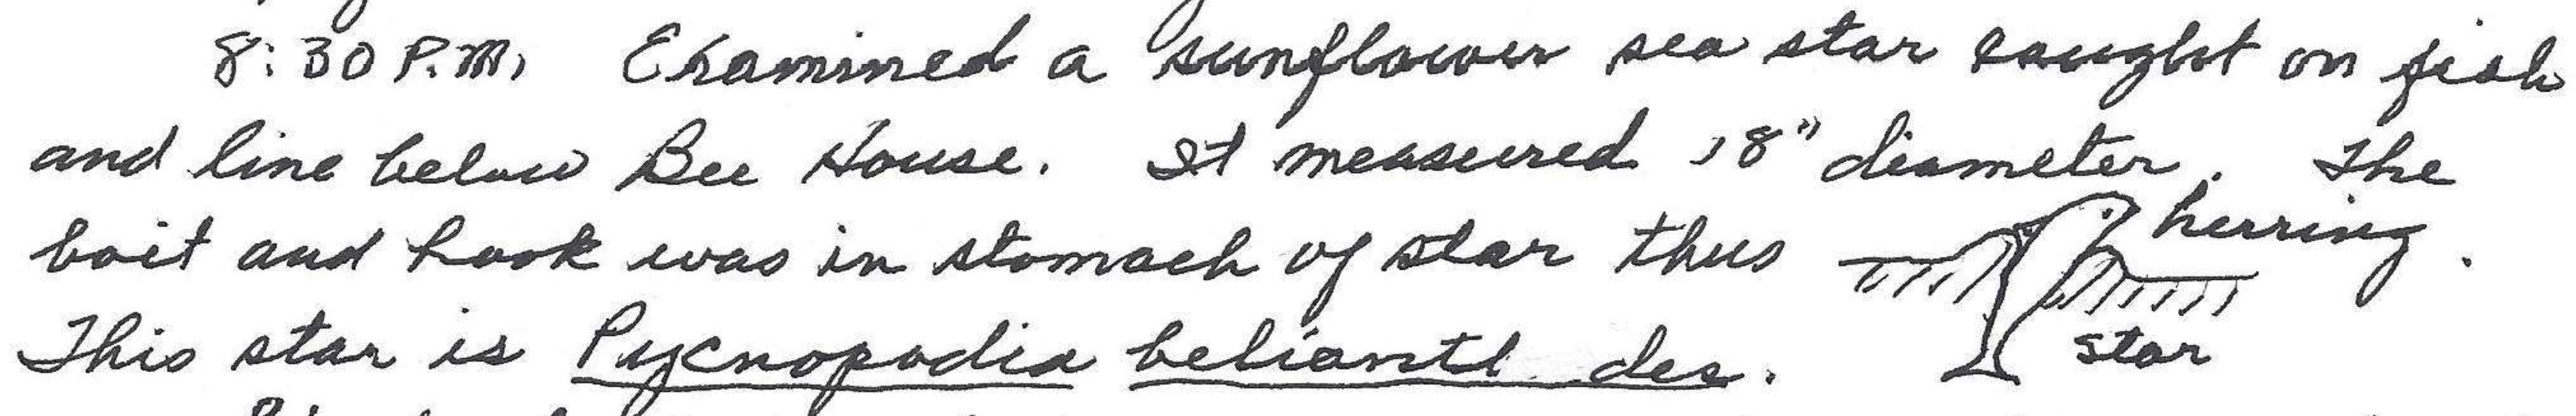 8:30 P.M. Examined a sunflower sea star caught on fish
and line below Bee House. It measured 18" diameter. The
bait and hook was in stomach of star thus herring.
This star is Pycnopodia helianth des. star